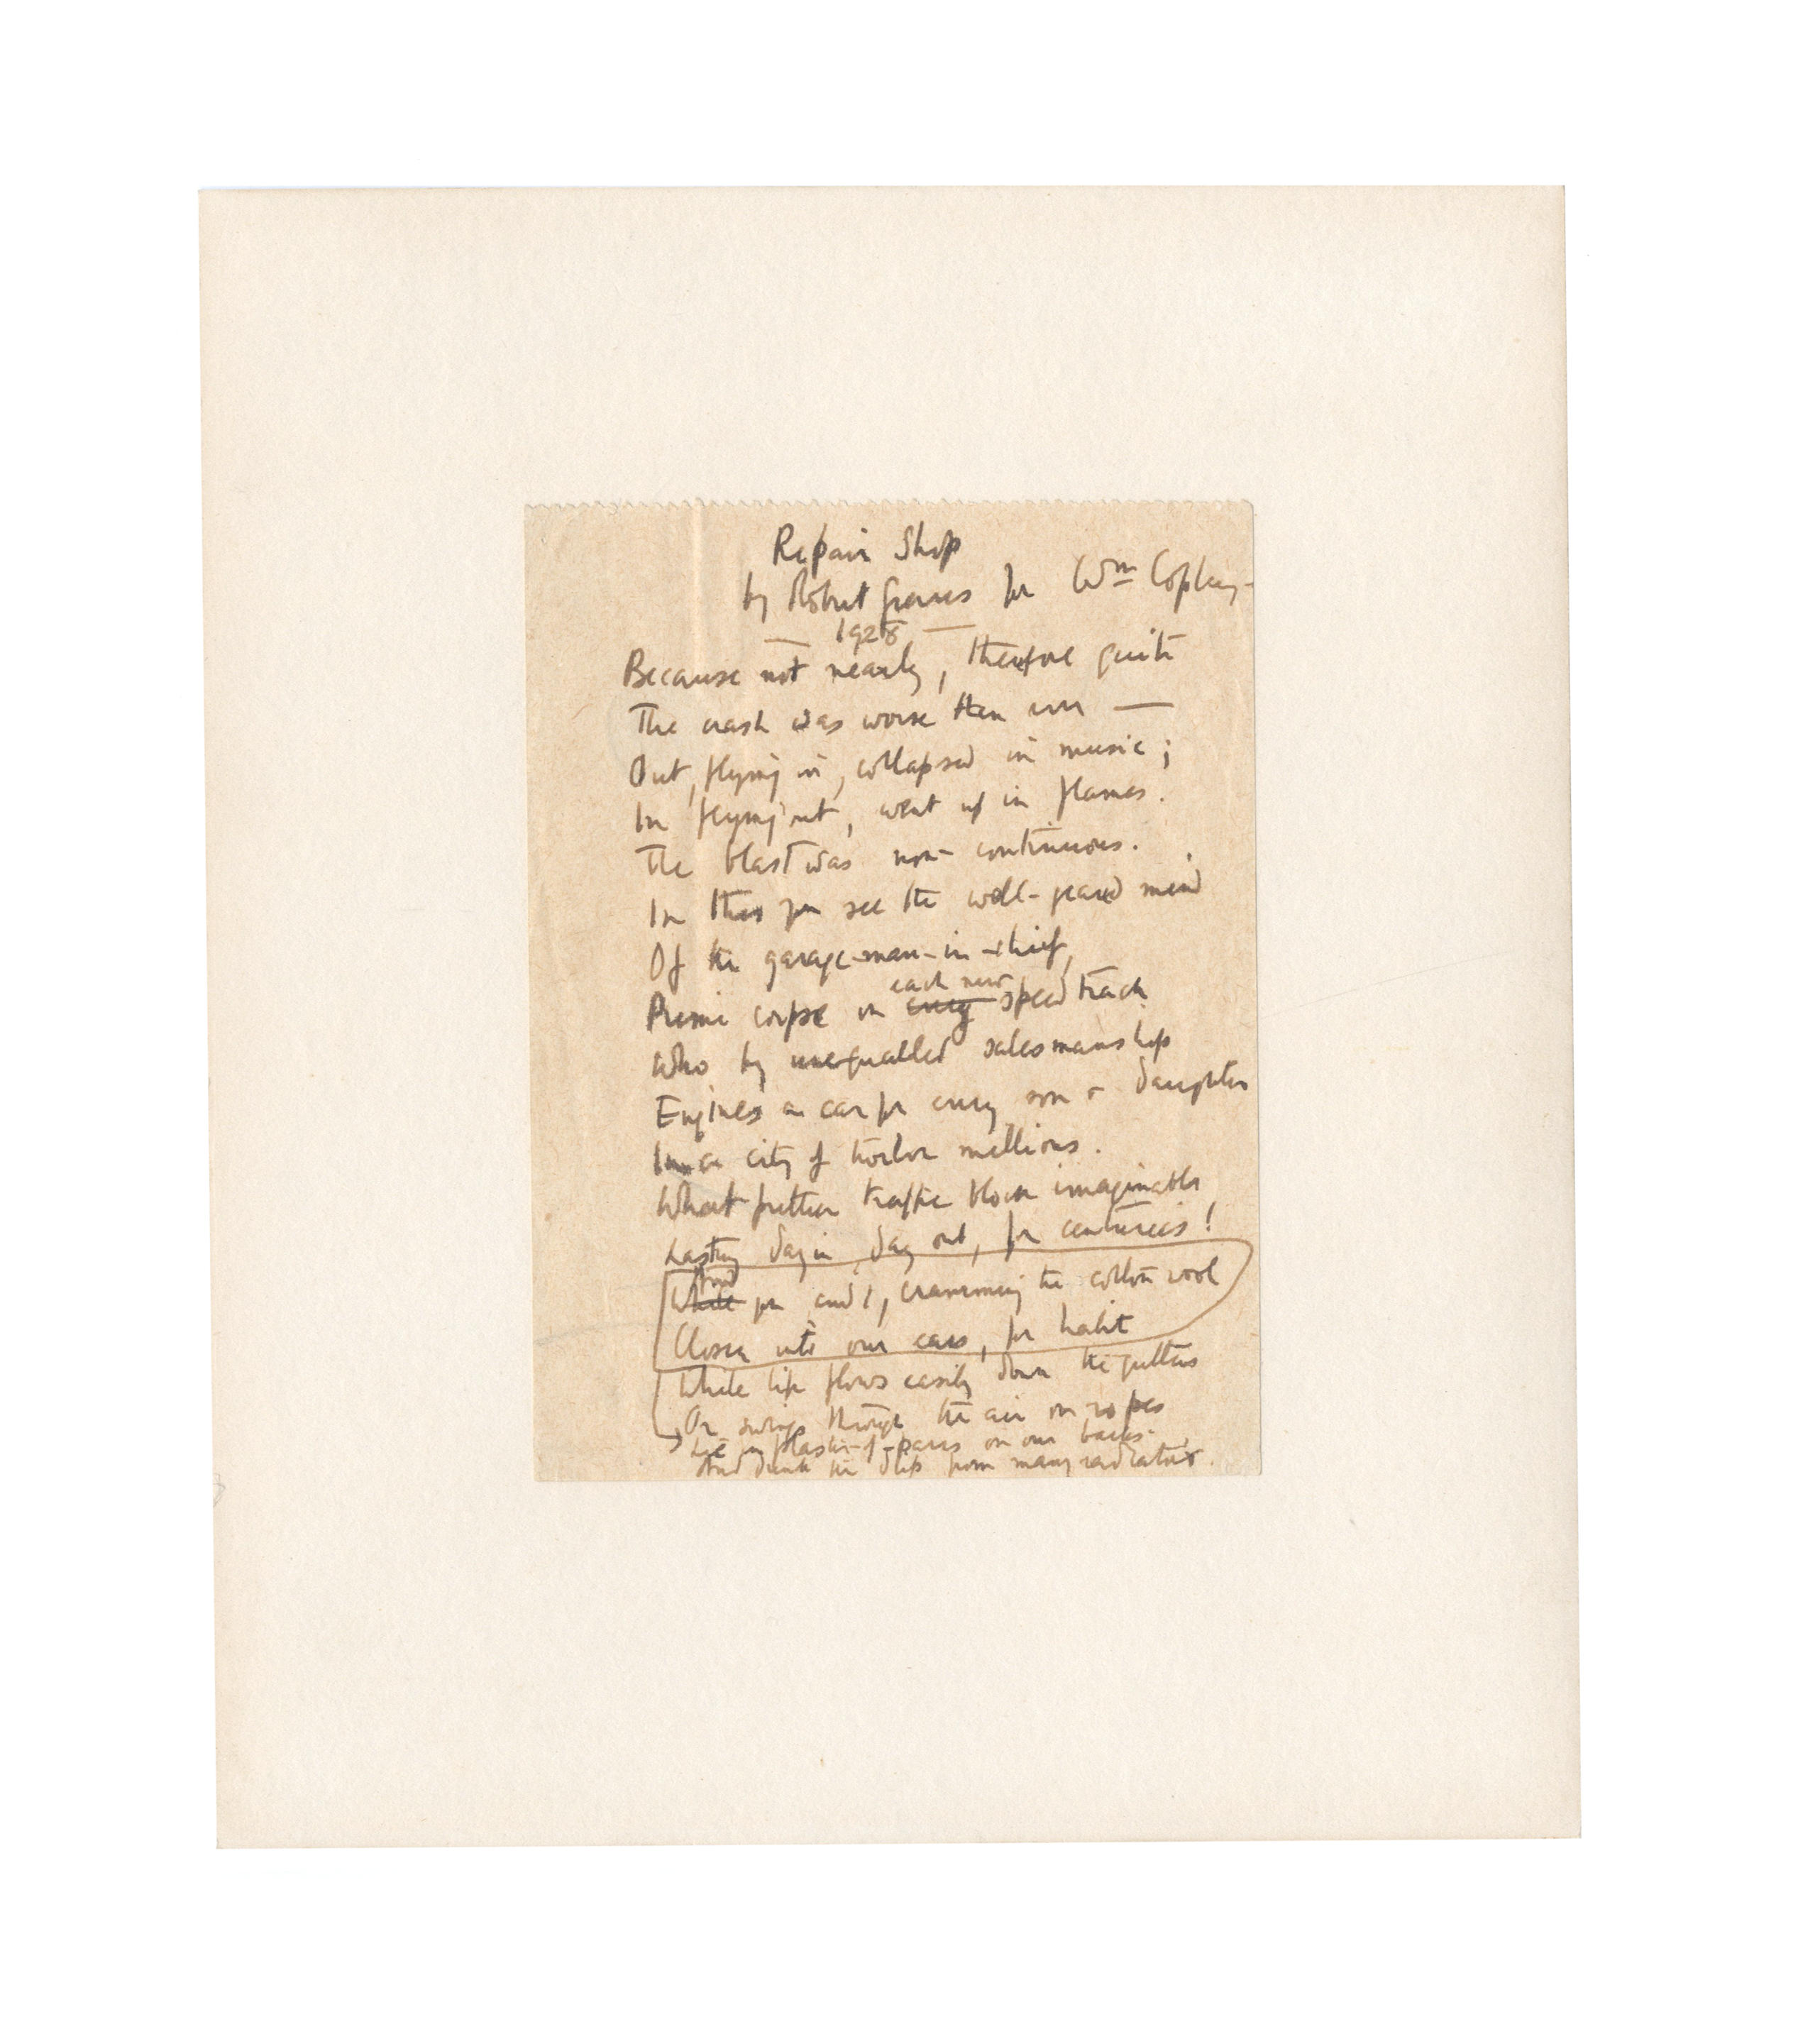 Repair Shop
by Robert Graves for Wm Copley-
— 1928 —
Because not nearly, therefore quite
The crash was worse than ever —
Out, flying in, collapsed in music;
In flying out, went up in flames.
The blast was non-continuous.
In this you see the well-geared mind
Of the garage-man-in-chief,
Prime corpse in each new
every speed track
Who by unequalled salesmanship
Engines a car for every son & daughter
In a city of twelve millions.
What further traffic block imaginable
Lasting day in, day out, for centuries!
And
While you and I, cramming the cotton wool
Closer into our ears, for habit
While life flows easily down the gutters
Or swings through the air on ropes
Lie in plaster-of-paris on our backs
And drink the drips from many radiators.